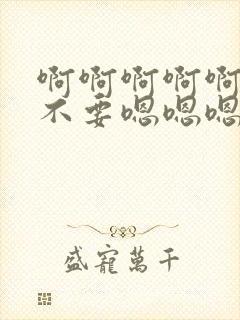 啊啊啊啊啊
不要嗯嗯嗯
盛寵萬千